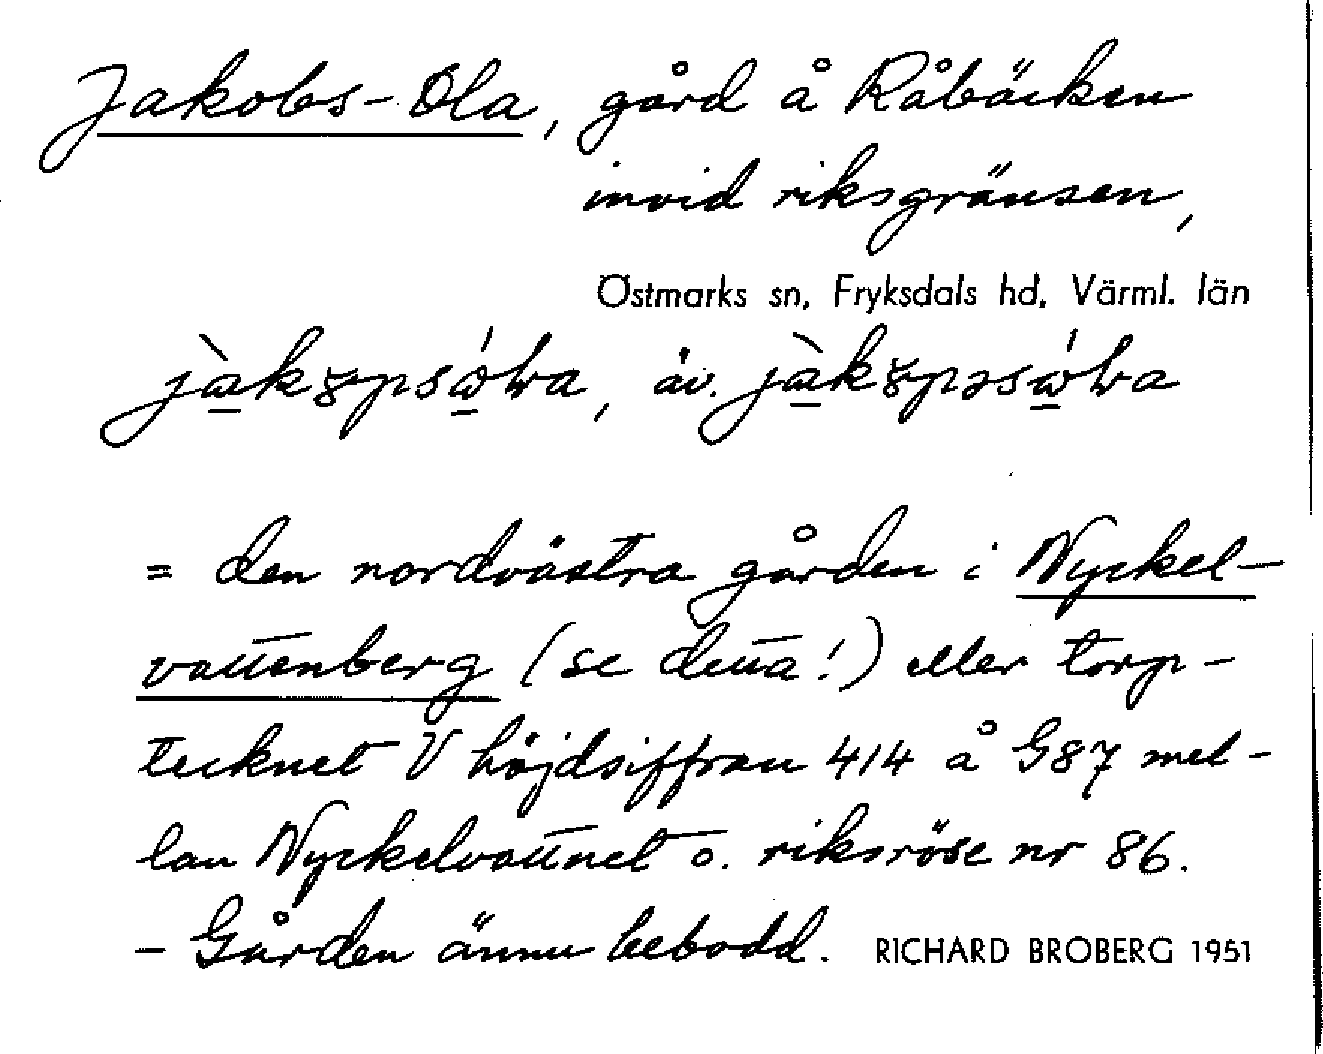 Jakobs-Ola, gård å Råbäcken
invid riksgränsen,
Östmarks sn, Fryksdals hd, Värml. län
äv.
= den nordvästra gården i Nyckel-
vattenberg (se detta!) eller torp-
tecknet V höjdsiffran 414 å G87 mel-
lan Nyckelvattnet o. riksröse nr 86.
- Gården ännu bebodd. RICHARD BROBERG 1951